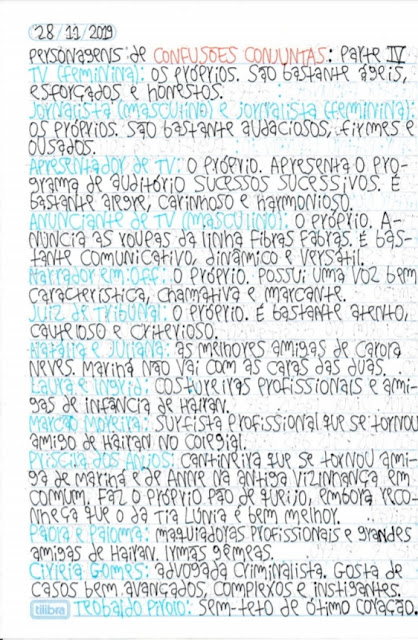 28/11/2019
Personagens de CONFUSÕES CONJUNTAS: Parte IV
TV (feminina): os próprios. São bastante ágeis,
esforçados e honestos.
Jornalista (masculino) e jornalista (feminina):
os próprios. São bastante audaciosos, firmes e
ousados.
Apresentador de TV: o próprio. Apresenta o pro-
grama de auditório SUCESSOS SUCESSIVOS. É
bastante alegre, carinhoso e harmonioso.
Anunciante de TV (masculino): o próprio. A-
nuncia as roupas da linha Fibras Fabras. É bas-
tante comunicativo, dinâmico e versátil.
Narrador em Off: o próprio. Possui uma voz bem
característica, chamativa e marcante.
Juiz de Tribunal: o próprio. É bastante atento,
cauteloso e criterioso.
Natália e Juliana: as melhores amigas de Carola
Neves. Marina não vai com as caras das duas.
Laura e Ingrid: costureiras profissionais e ami-
gas de infância de Hairan.
Marcão Moreira: surfista profissional que se tornou
amigo de Hairan no colegial.
Priscila dos Anjos: cantineira que se tornou ami-
ga de Marina e de Anne na antiga vizinhança em
comum. Faz o próprio pão de queijo, embora reco-
nheça que o da Tia Lúnia é bem melhor.
Paola e Paloma: maquiadoras profissionais e grandes
amigas de Hairan. Irmãs gêmeas.
Cirleia Gomes: advogada criminalista. Gosta de
casos bem avançados, complexos e instigantes.
tilibra Teobaldo Pirolo: sem-teto de ótimo coração.